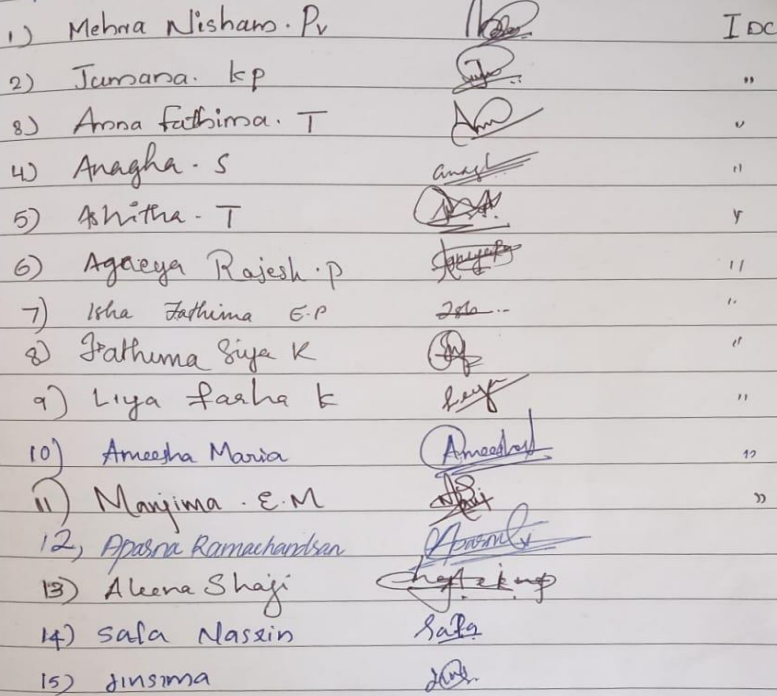 1) Mehna Nisham. Pv IDC
2) Jumana. kp "
3) Amna Fathima. T "
4) Anagha. S anagh "
5) Ashitha. T "
6) Agneya Rajesh. P "
7) Isha Fathima E.P Isha "
8) Fathima Siya K "
9) Liya farha k Liya "
10) Ameesha Maria Ameesha "
11) Manjima. E.M "
12, Aparna Ramachandran
13) Aleena Shaji
14) Safa Nasrin Safa
15) Jinsima